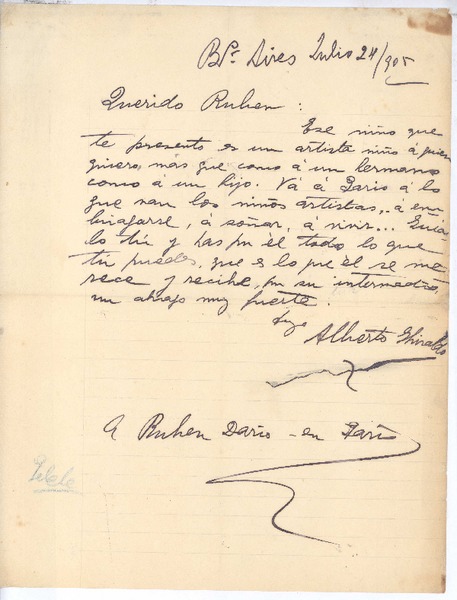 Bs. Aires Julio 24/905
Querido Ruben:
Ese niño que
te presento es un artista niño á quien
quiero más que como á un hermano
como á un hijo. Vá á Paris á lo
que van los niños artistas, á em-
briagarse, á soñar, á vivir... Guia-
lo tú y has por él todo lo que
tú puedas, que es lo que él se me-
rece y recibe, por su intermedio,
un abrazo muy fuerte.
Tuyo
Alberto Ghiraldo
A Ruben Dario - en Paris